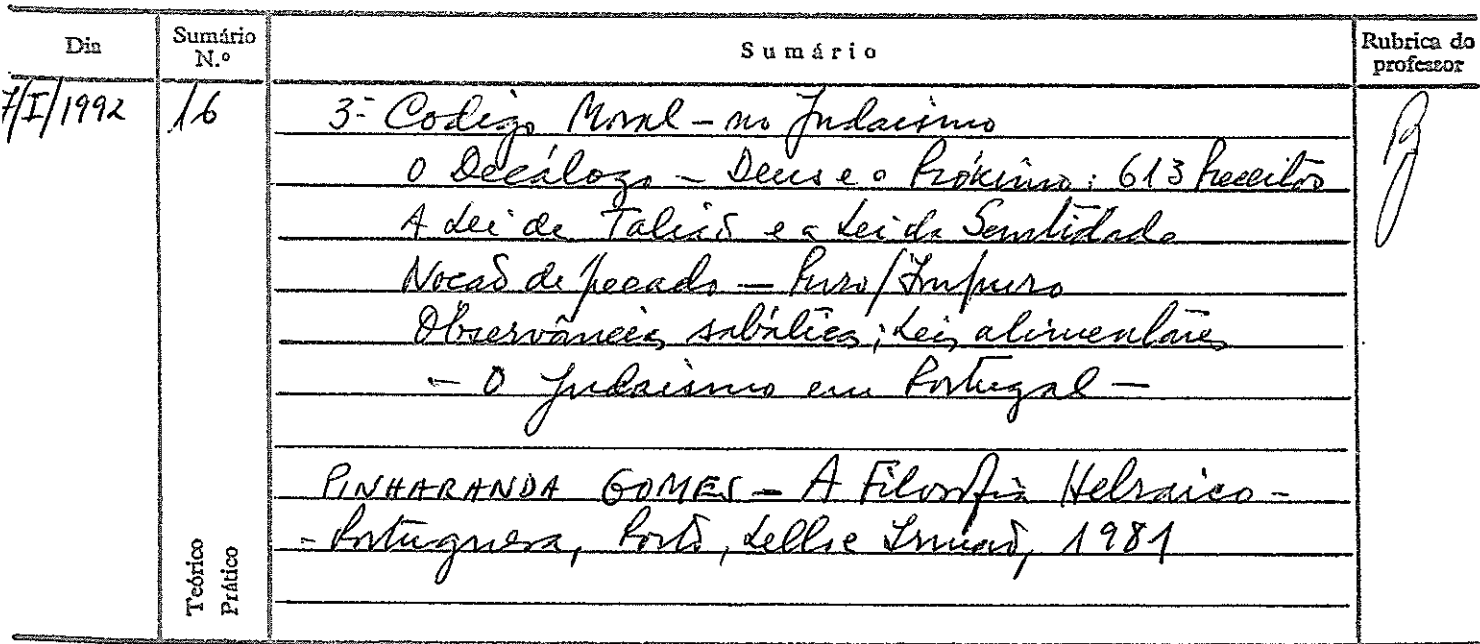 Dia
Sumário N.º
Sumário
Rubrica do professor
7/I/1992
16
3- Codigo Moral - no Judaismo
O Decálogo - Deus e o Próximo: 613 Preceitos
A Lei de Talião e a Lei da Santidade
Nocaõ de pecado - Puro/Impuro
Observâncias sabáticas; Leis alimentares
- O Judaismo em Portugal -
PINHARANDA GOMES - A Filosofia Hebraico-
-Portuguesa, Porto, Lello e Irmaõ, 1981
Teórico
Prático